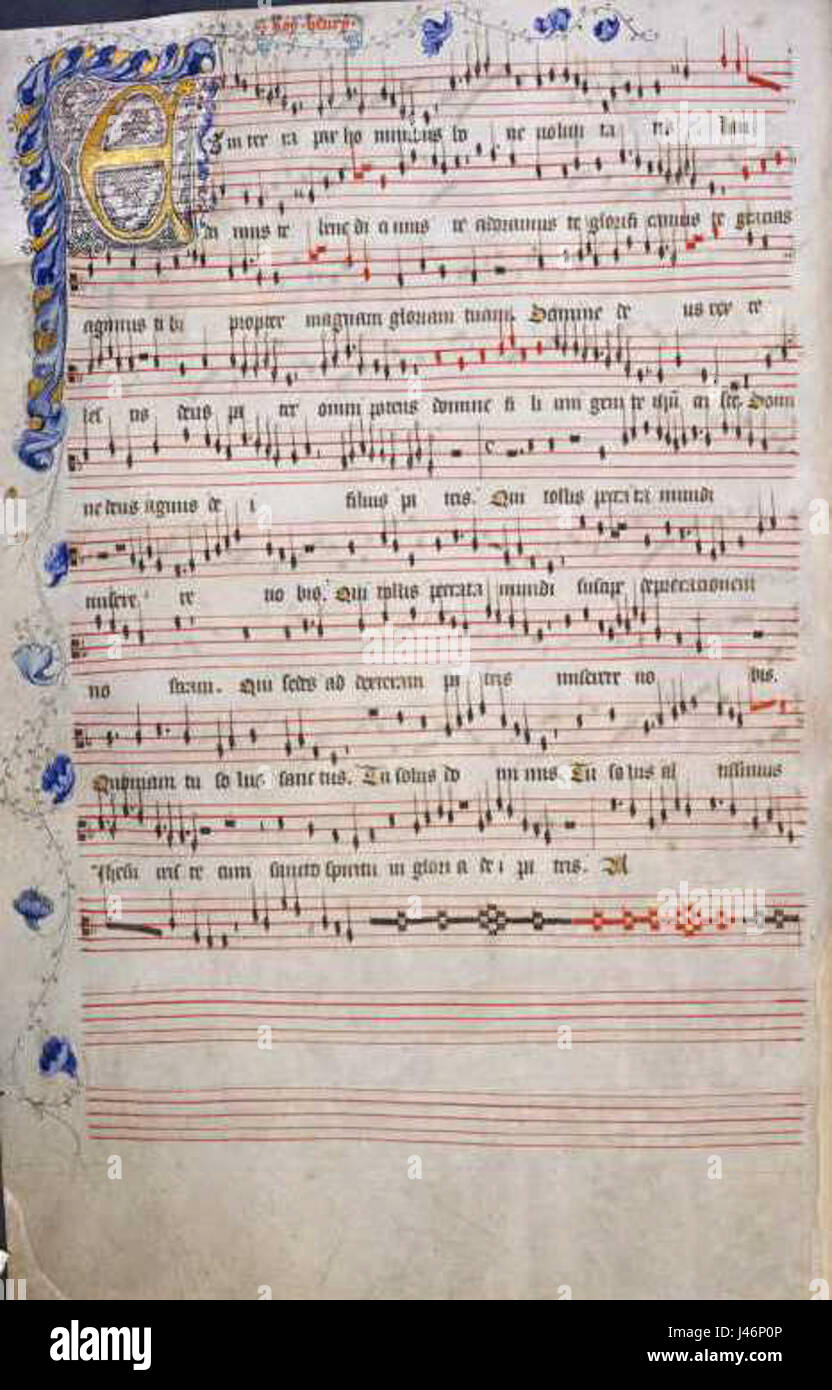 Roy henry
Et in ter ra par ho minibus bo ne volun ta tis lau
da mus te bene di a mus te adoramus te glorifi camus te gracias
agimus ti bi propter magnam gloriam tuam. Domine de us rex ce
les tis deus pa ter omni potens domine fi li uni geni te ihu xi ste. Domi
ne deus agnus de i filius pa tris. Qui tollis peccata mundi
misere re no bis. Qui tollis peccata mundi suscipe deprecationem
no stram. Qui sedes ad dexteram pa tris miserere no bis.
Quoniam tu so lus sanc tus. Tu solus do mi nus. Tu so lus al tissimus
Ihesu criste cum sancto spiritu in glori a de i pa tris. A
alamy stock photo
alamy
Image ID: J46P0P
www.alamy.com